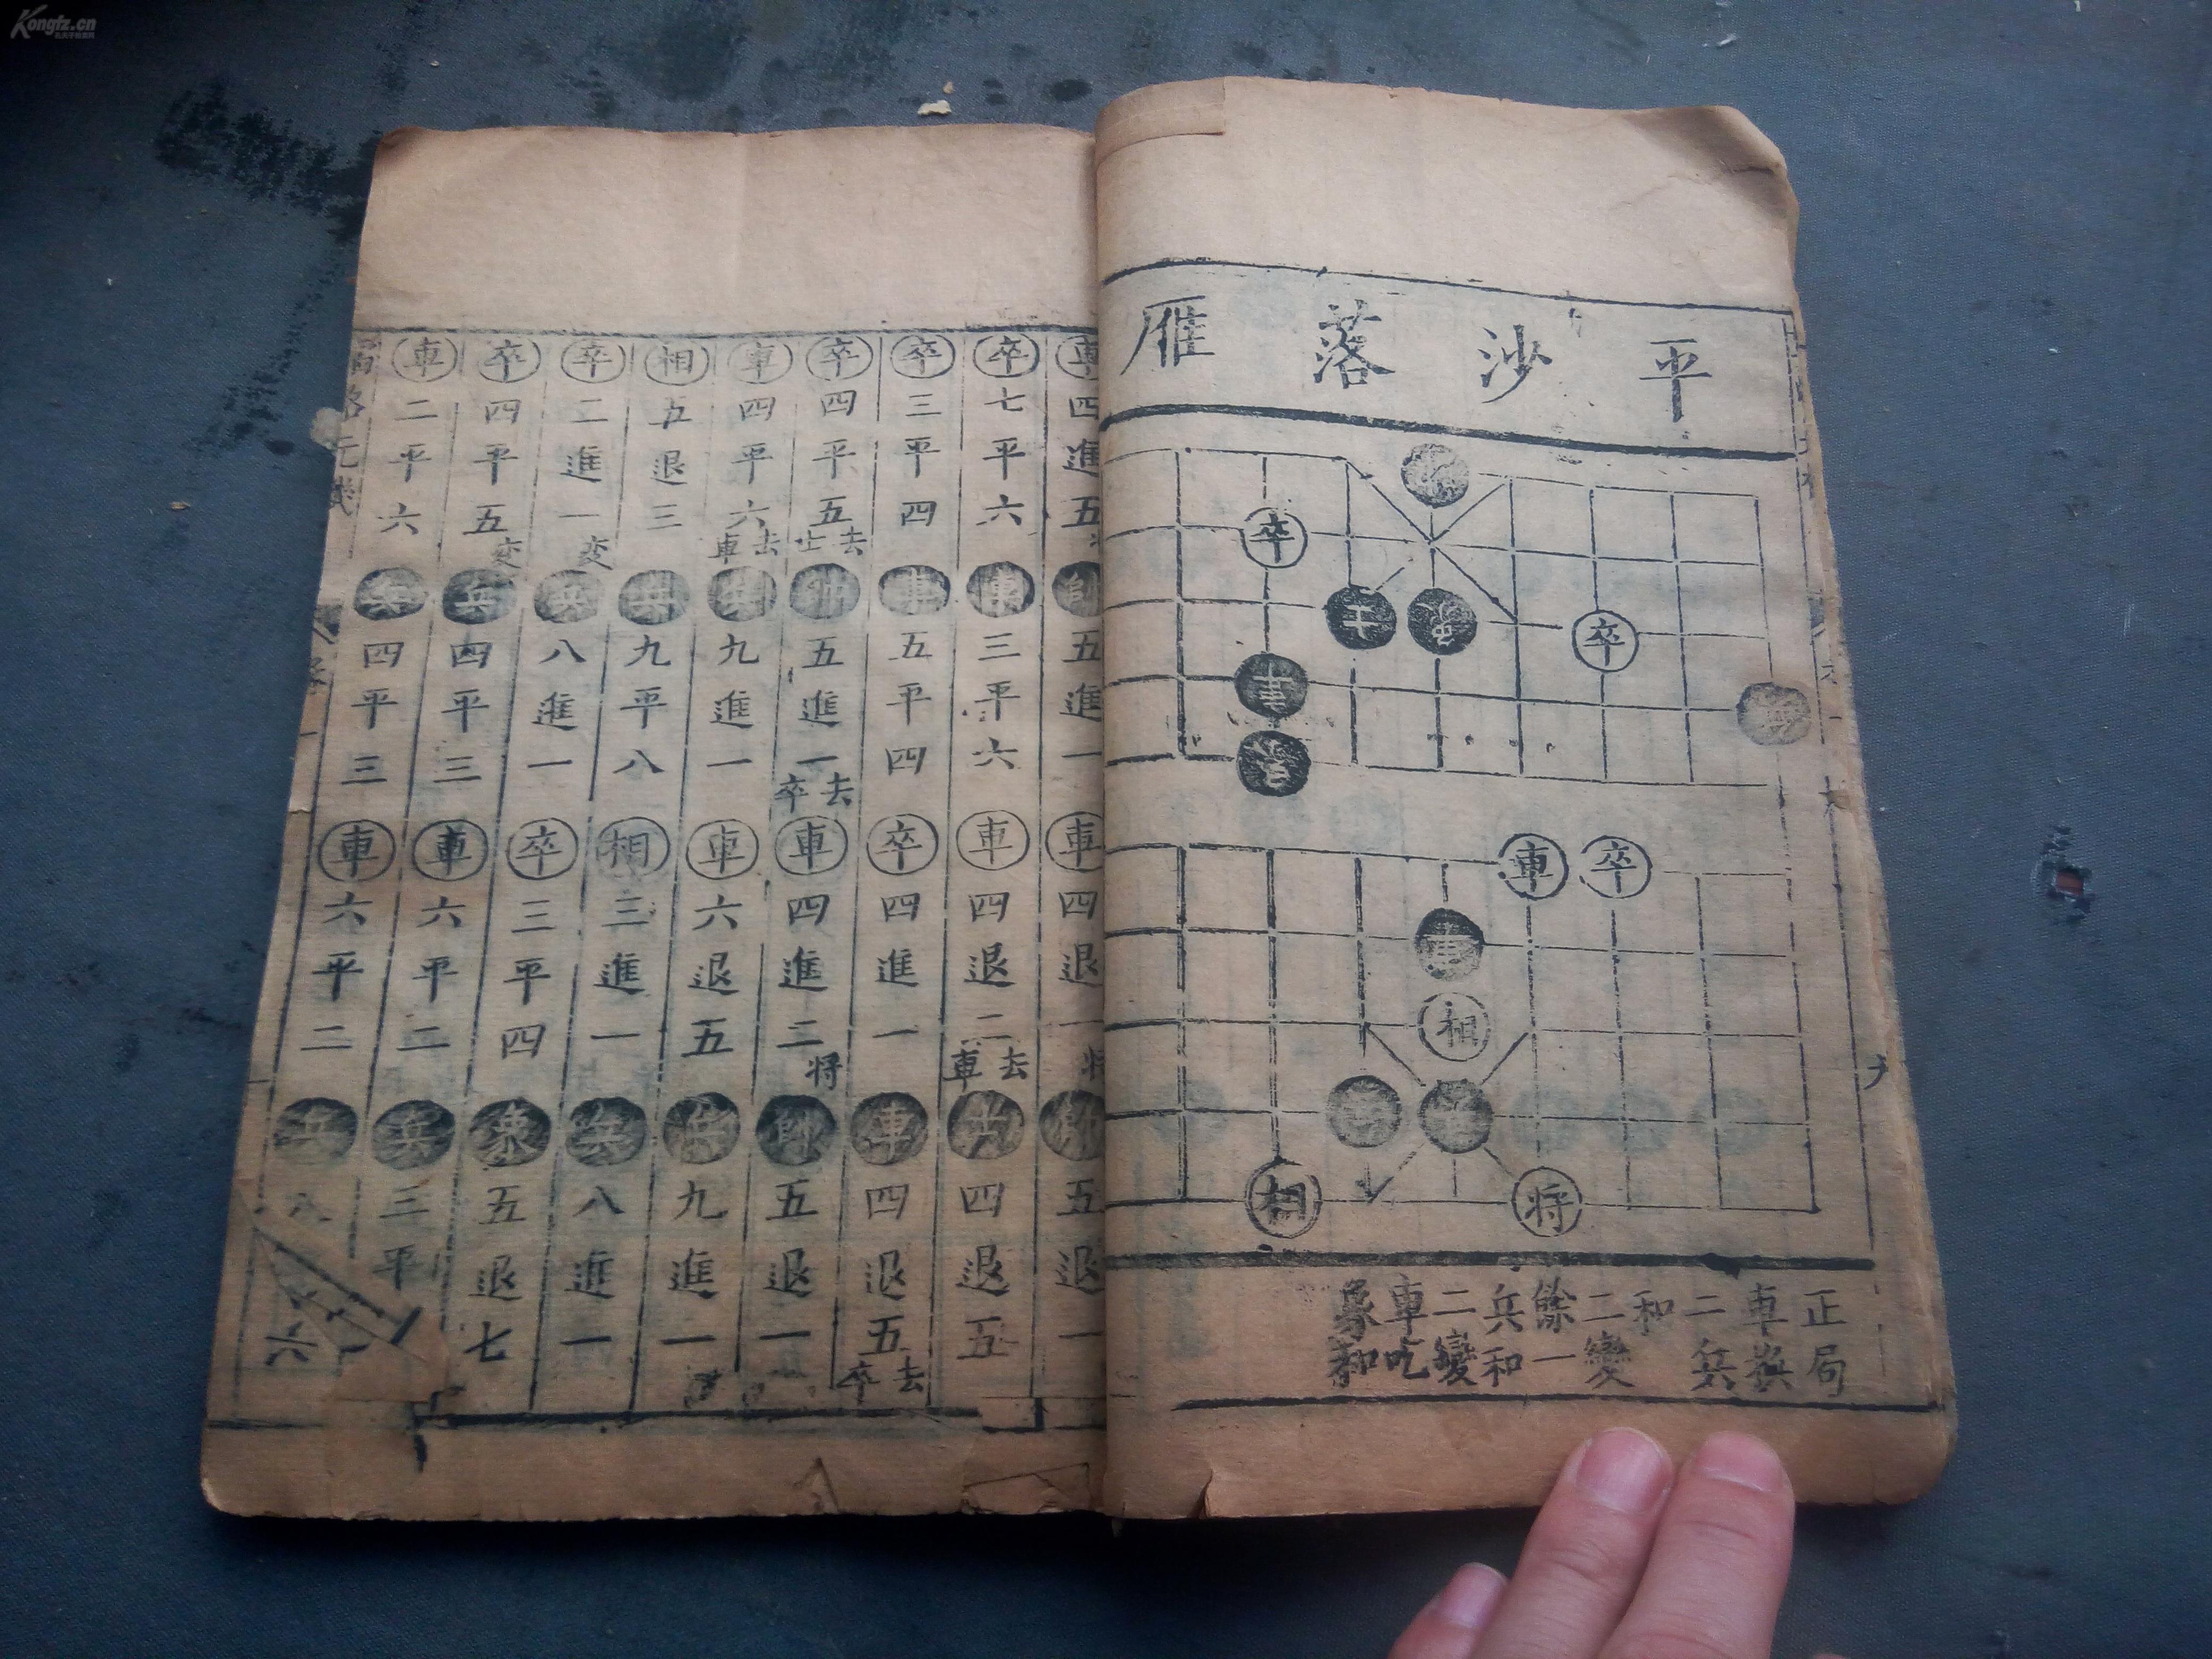 Kongfz.cn
平沙落雁
卒
士
卒
車
車
卒
車
相
相
将
正局
車換
二兵
和
二變
餘一
兵和
二變
車吃
象和
車四進五 帥五進一 車四退一将 帥五退一
卒七平六 車三平六 車四退二去車 四退五
卒三平四 車五平四 卒四進一 車四退五去卒
卒四平五去士 帥五進一去卒 車四進二将 帥五退一
車四平六去車 兵九進一 車六退五 兵九進一
相五退三 兵九平八 相三進一 兵八進一
卒二進一变 兵八進一 卒三平四 象五退七
卒四平五变 兵四平三 車六平二 兵三平
車二平六 兵四平三 車六平二 兵八 六